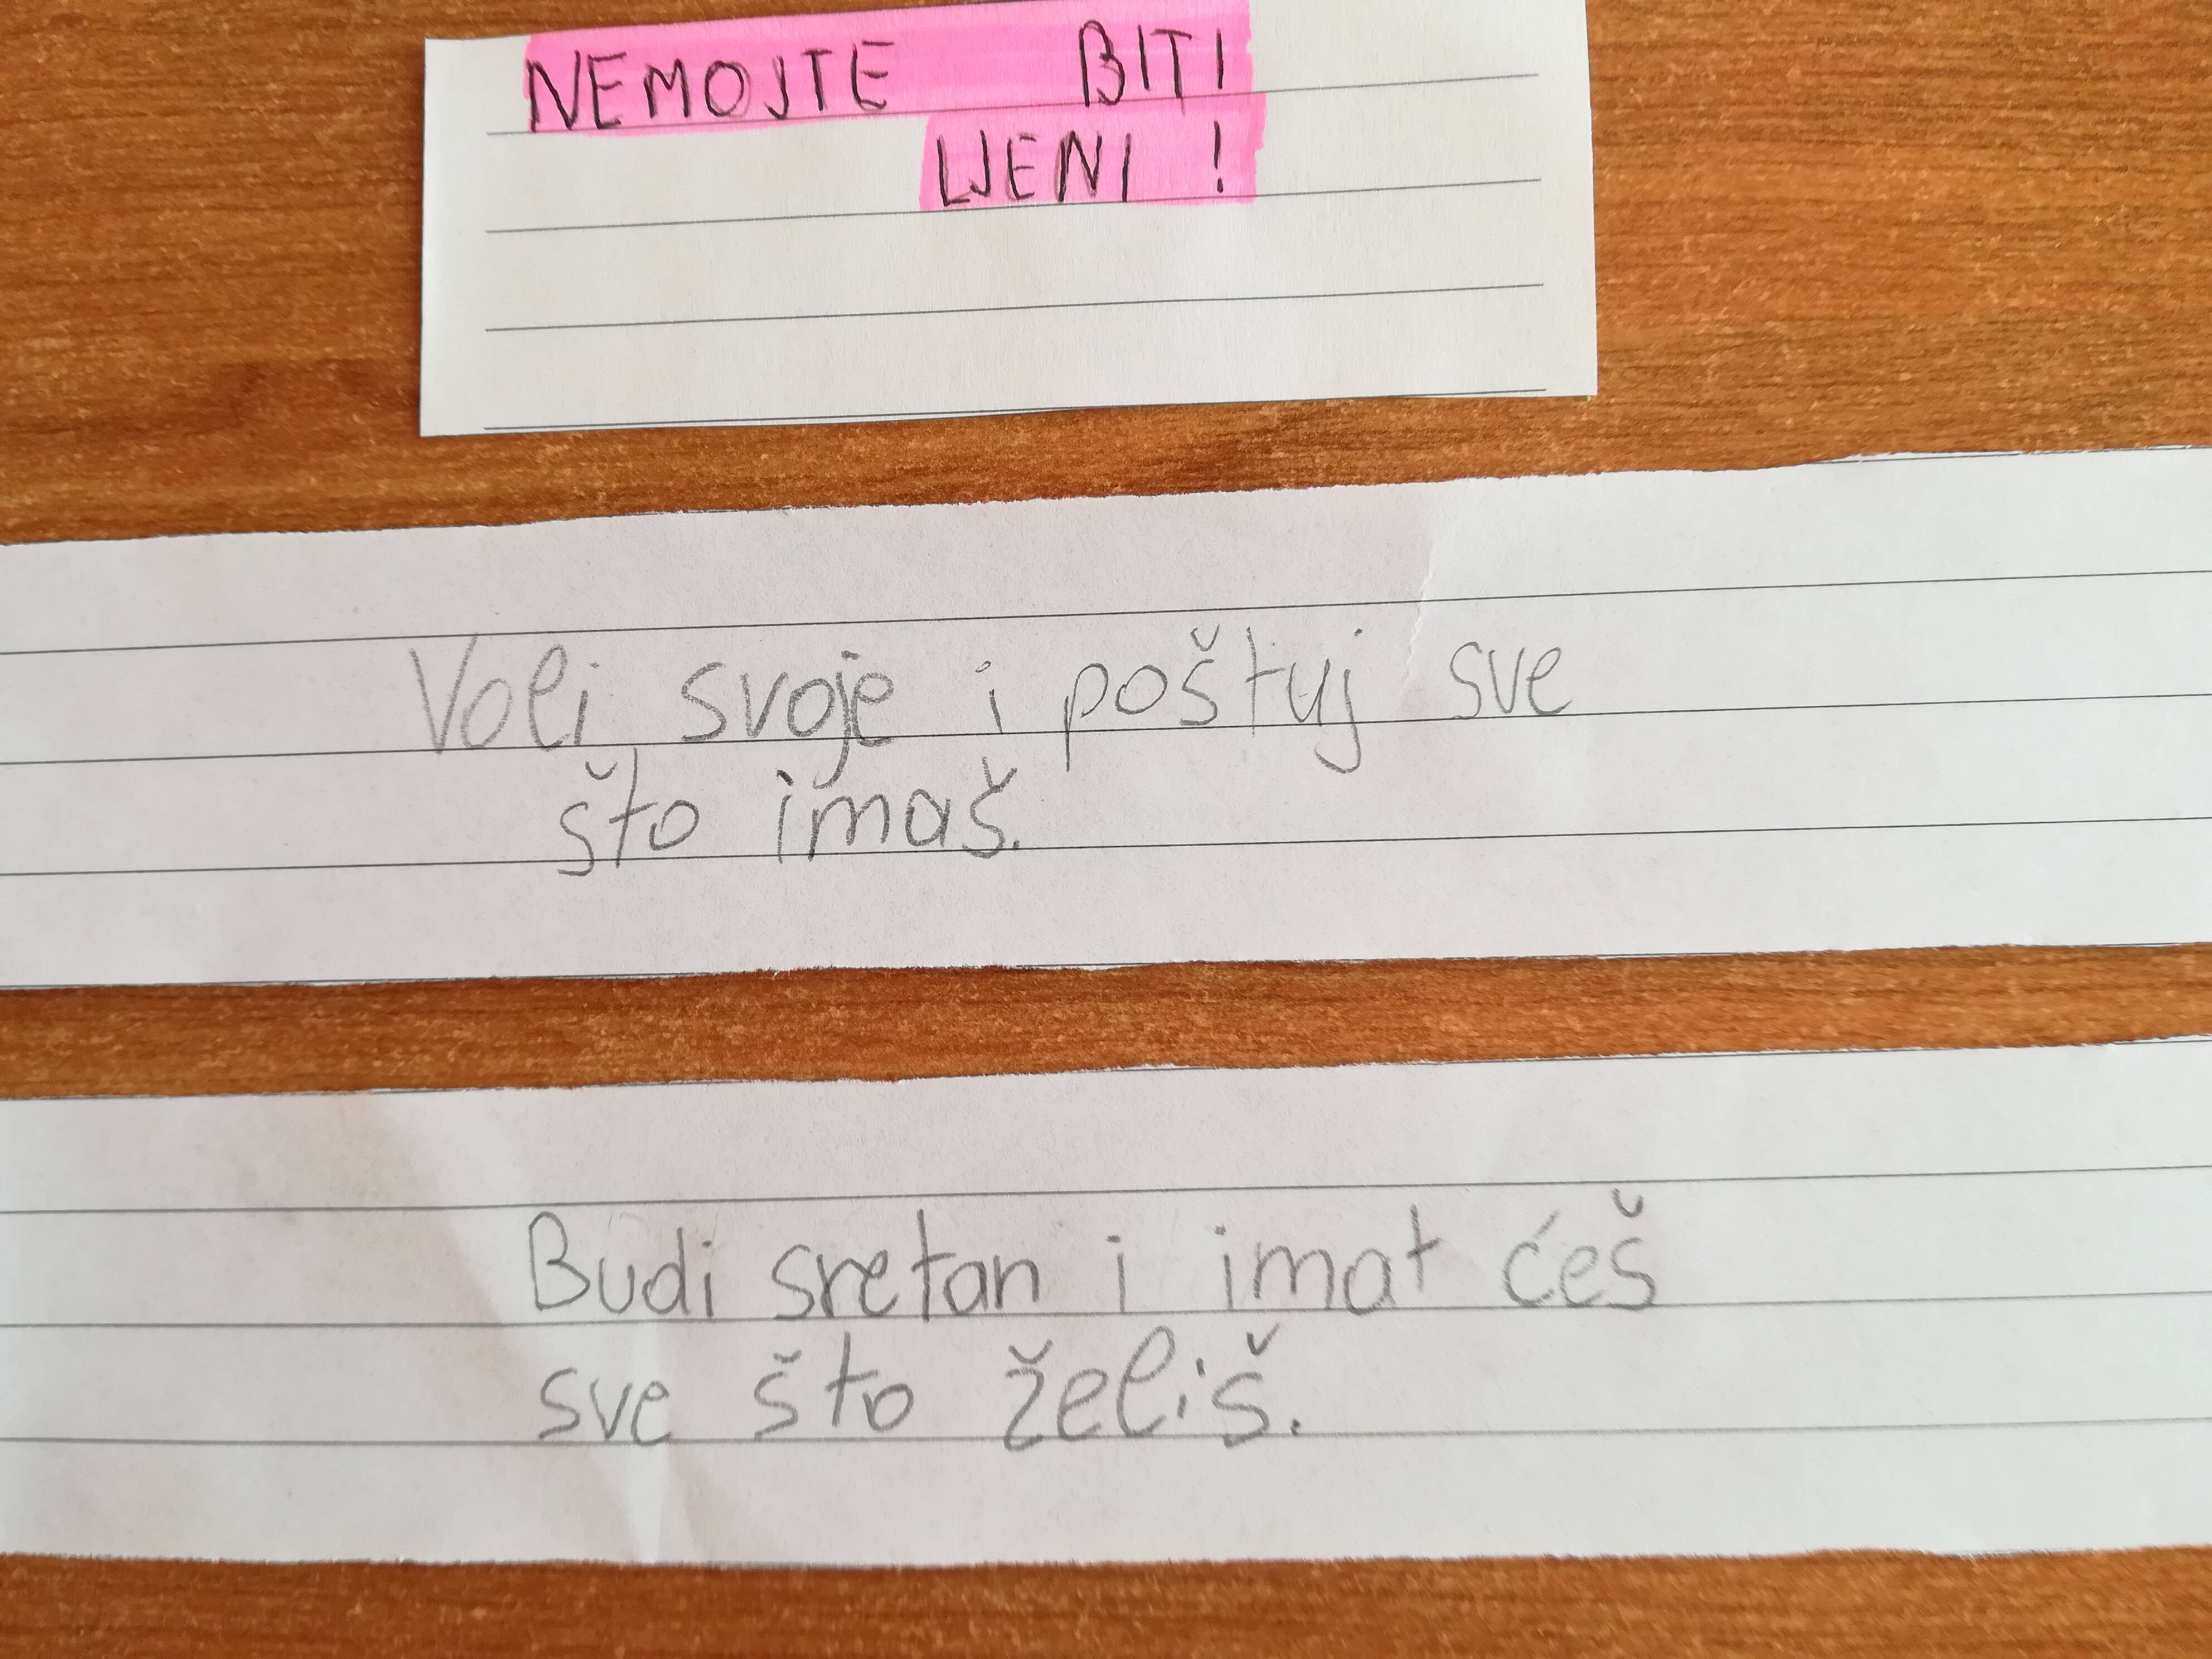 NEMOJTE BITI
LJENI !
Voli svoje i poštuj sve
što imaš.
Budi sretan i imat ćeš
sve što želiš.